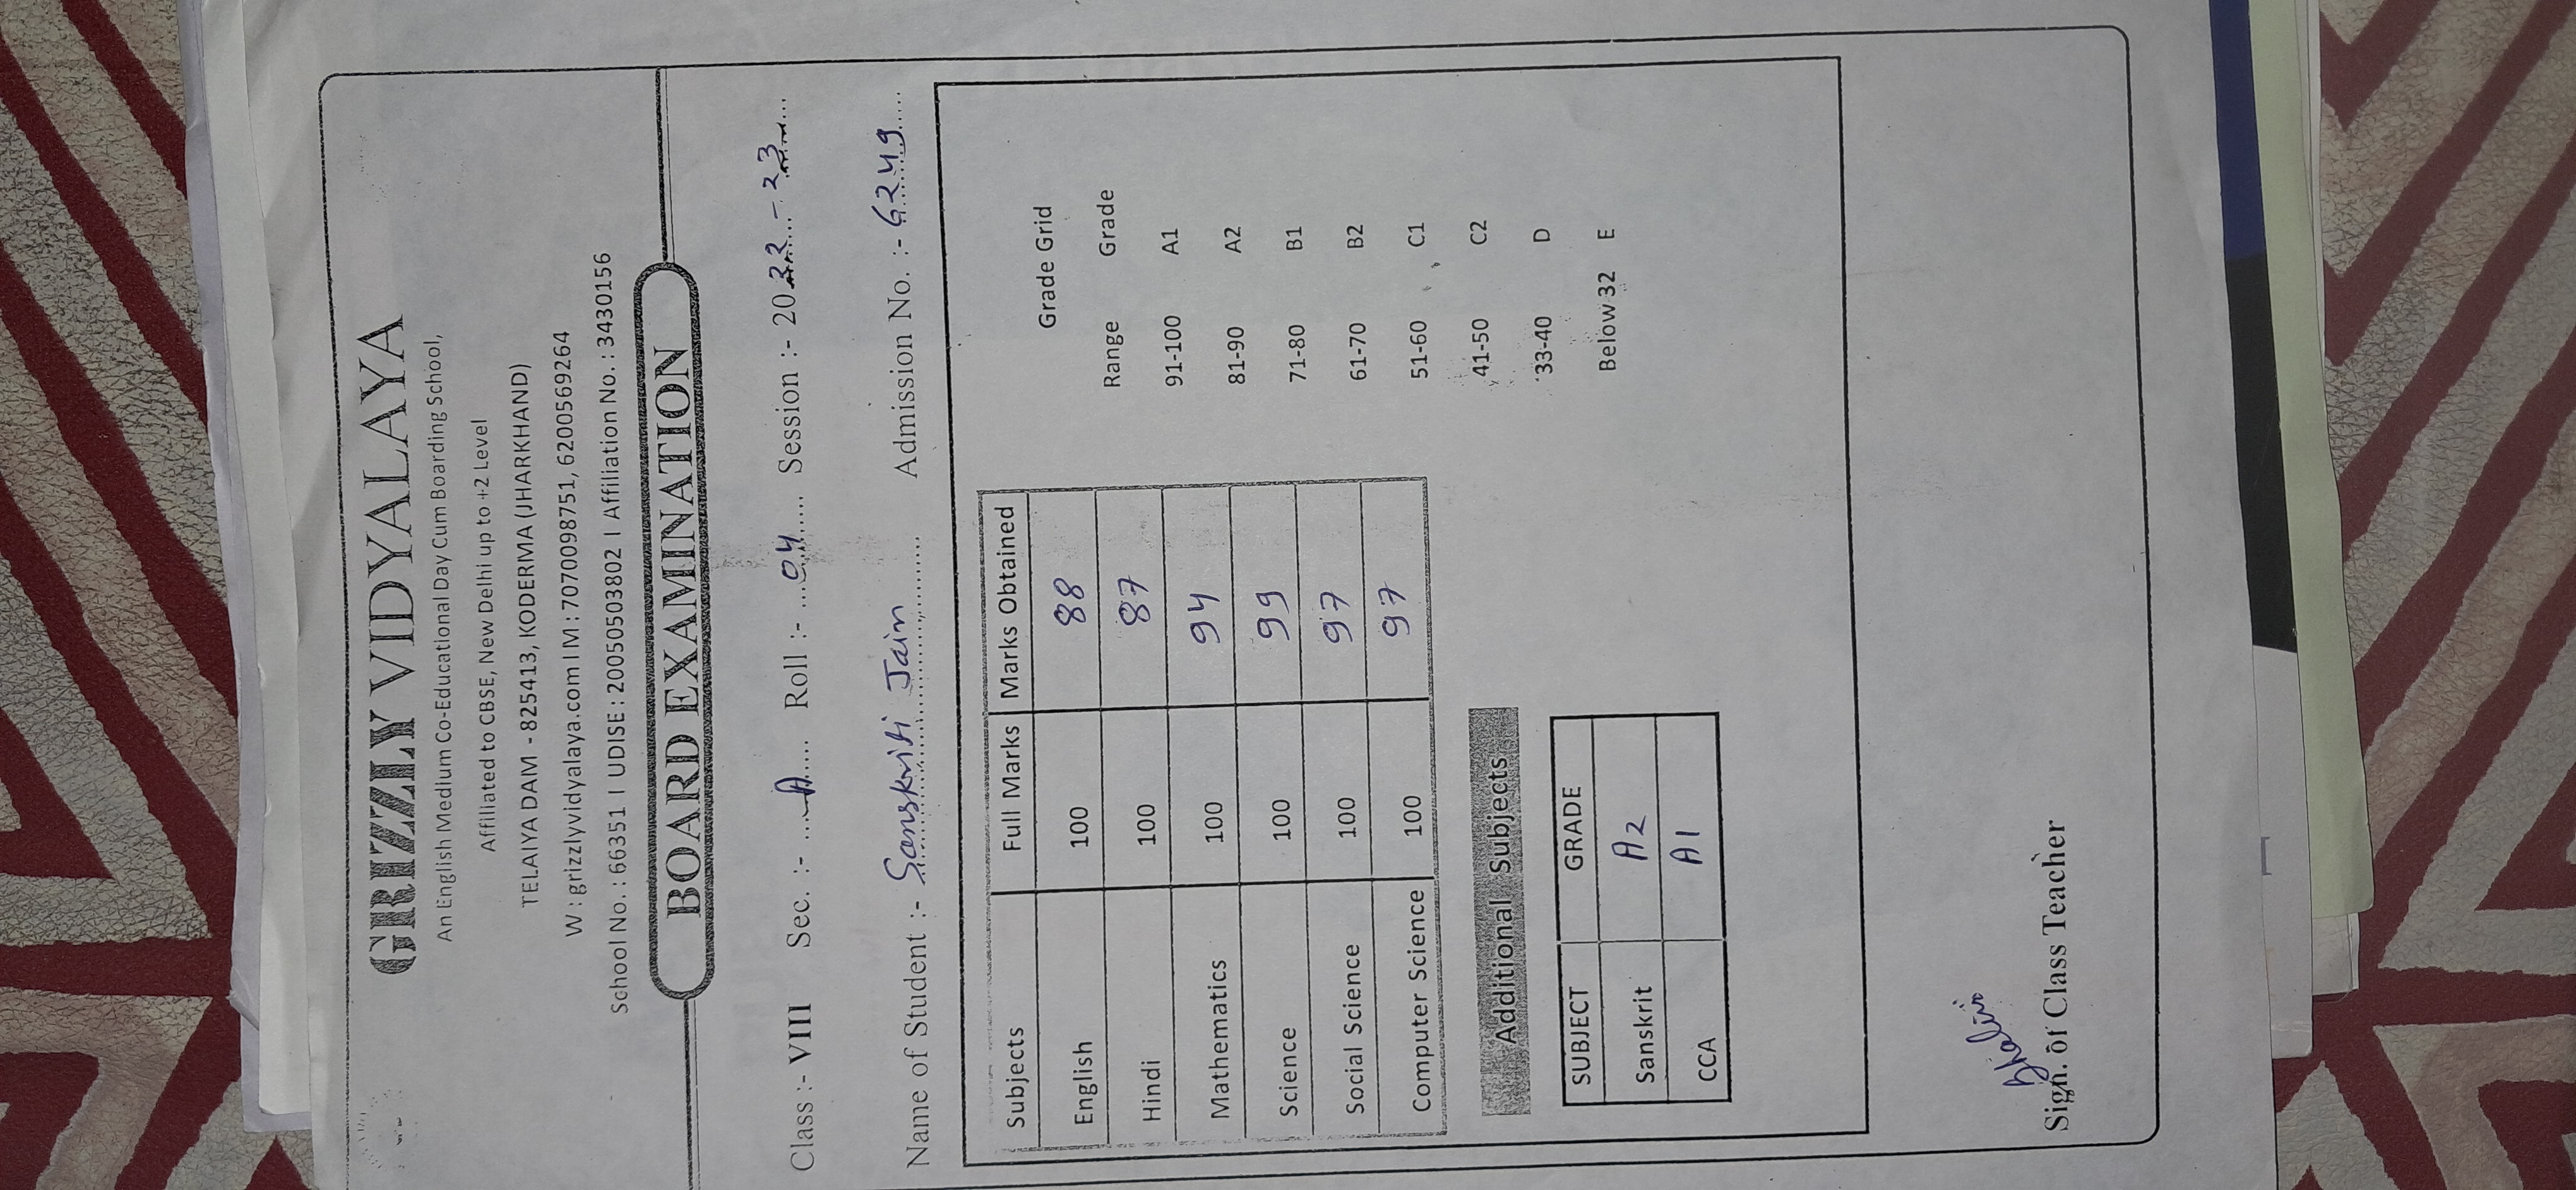 GRIZZLY VIDYALAYA
An English Medium Co-Educational Day Cum Boarding School,
Affiliated to CBSE, New Delhi up to +2 Level
TELAIYA DAM - 825413, KODERMA (JHARKHAND)
W : grizzlyvidyalaya.com I M : 7070098751, 6200569264
School No. : 66351 I UDISE : 20050503802 I Affiliation No. : 3430156
BOARD EXAMINATION
Class :- VIII Sec. :- A Roll :- 04 Session :- 2022-23
Name of Student :- Sanskriti Jain Admission No. :- 6249
Subjects Full Marks Marks Obtained
English 100 88
Hindi 100 87
Mathematics 100 94
Science 100 99
Social Science 100 97
Computer Science 100 97
Grade Grid
Range Grade
91-100 A1
81-90 A2
71-80 B1
61-70 B2
51-60 C1
41-50 C2
33-40 D
Below 32 E
Additional Subjects
SUBJECT GRADE
Sanskrit A2
CCA A1
Sign. of Class Teacher